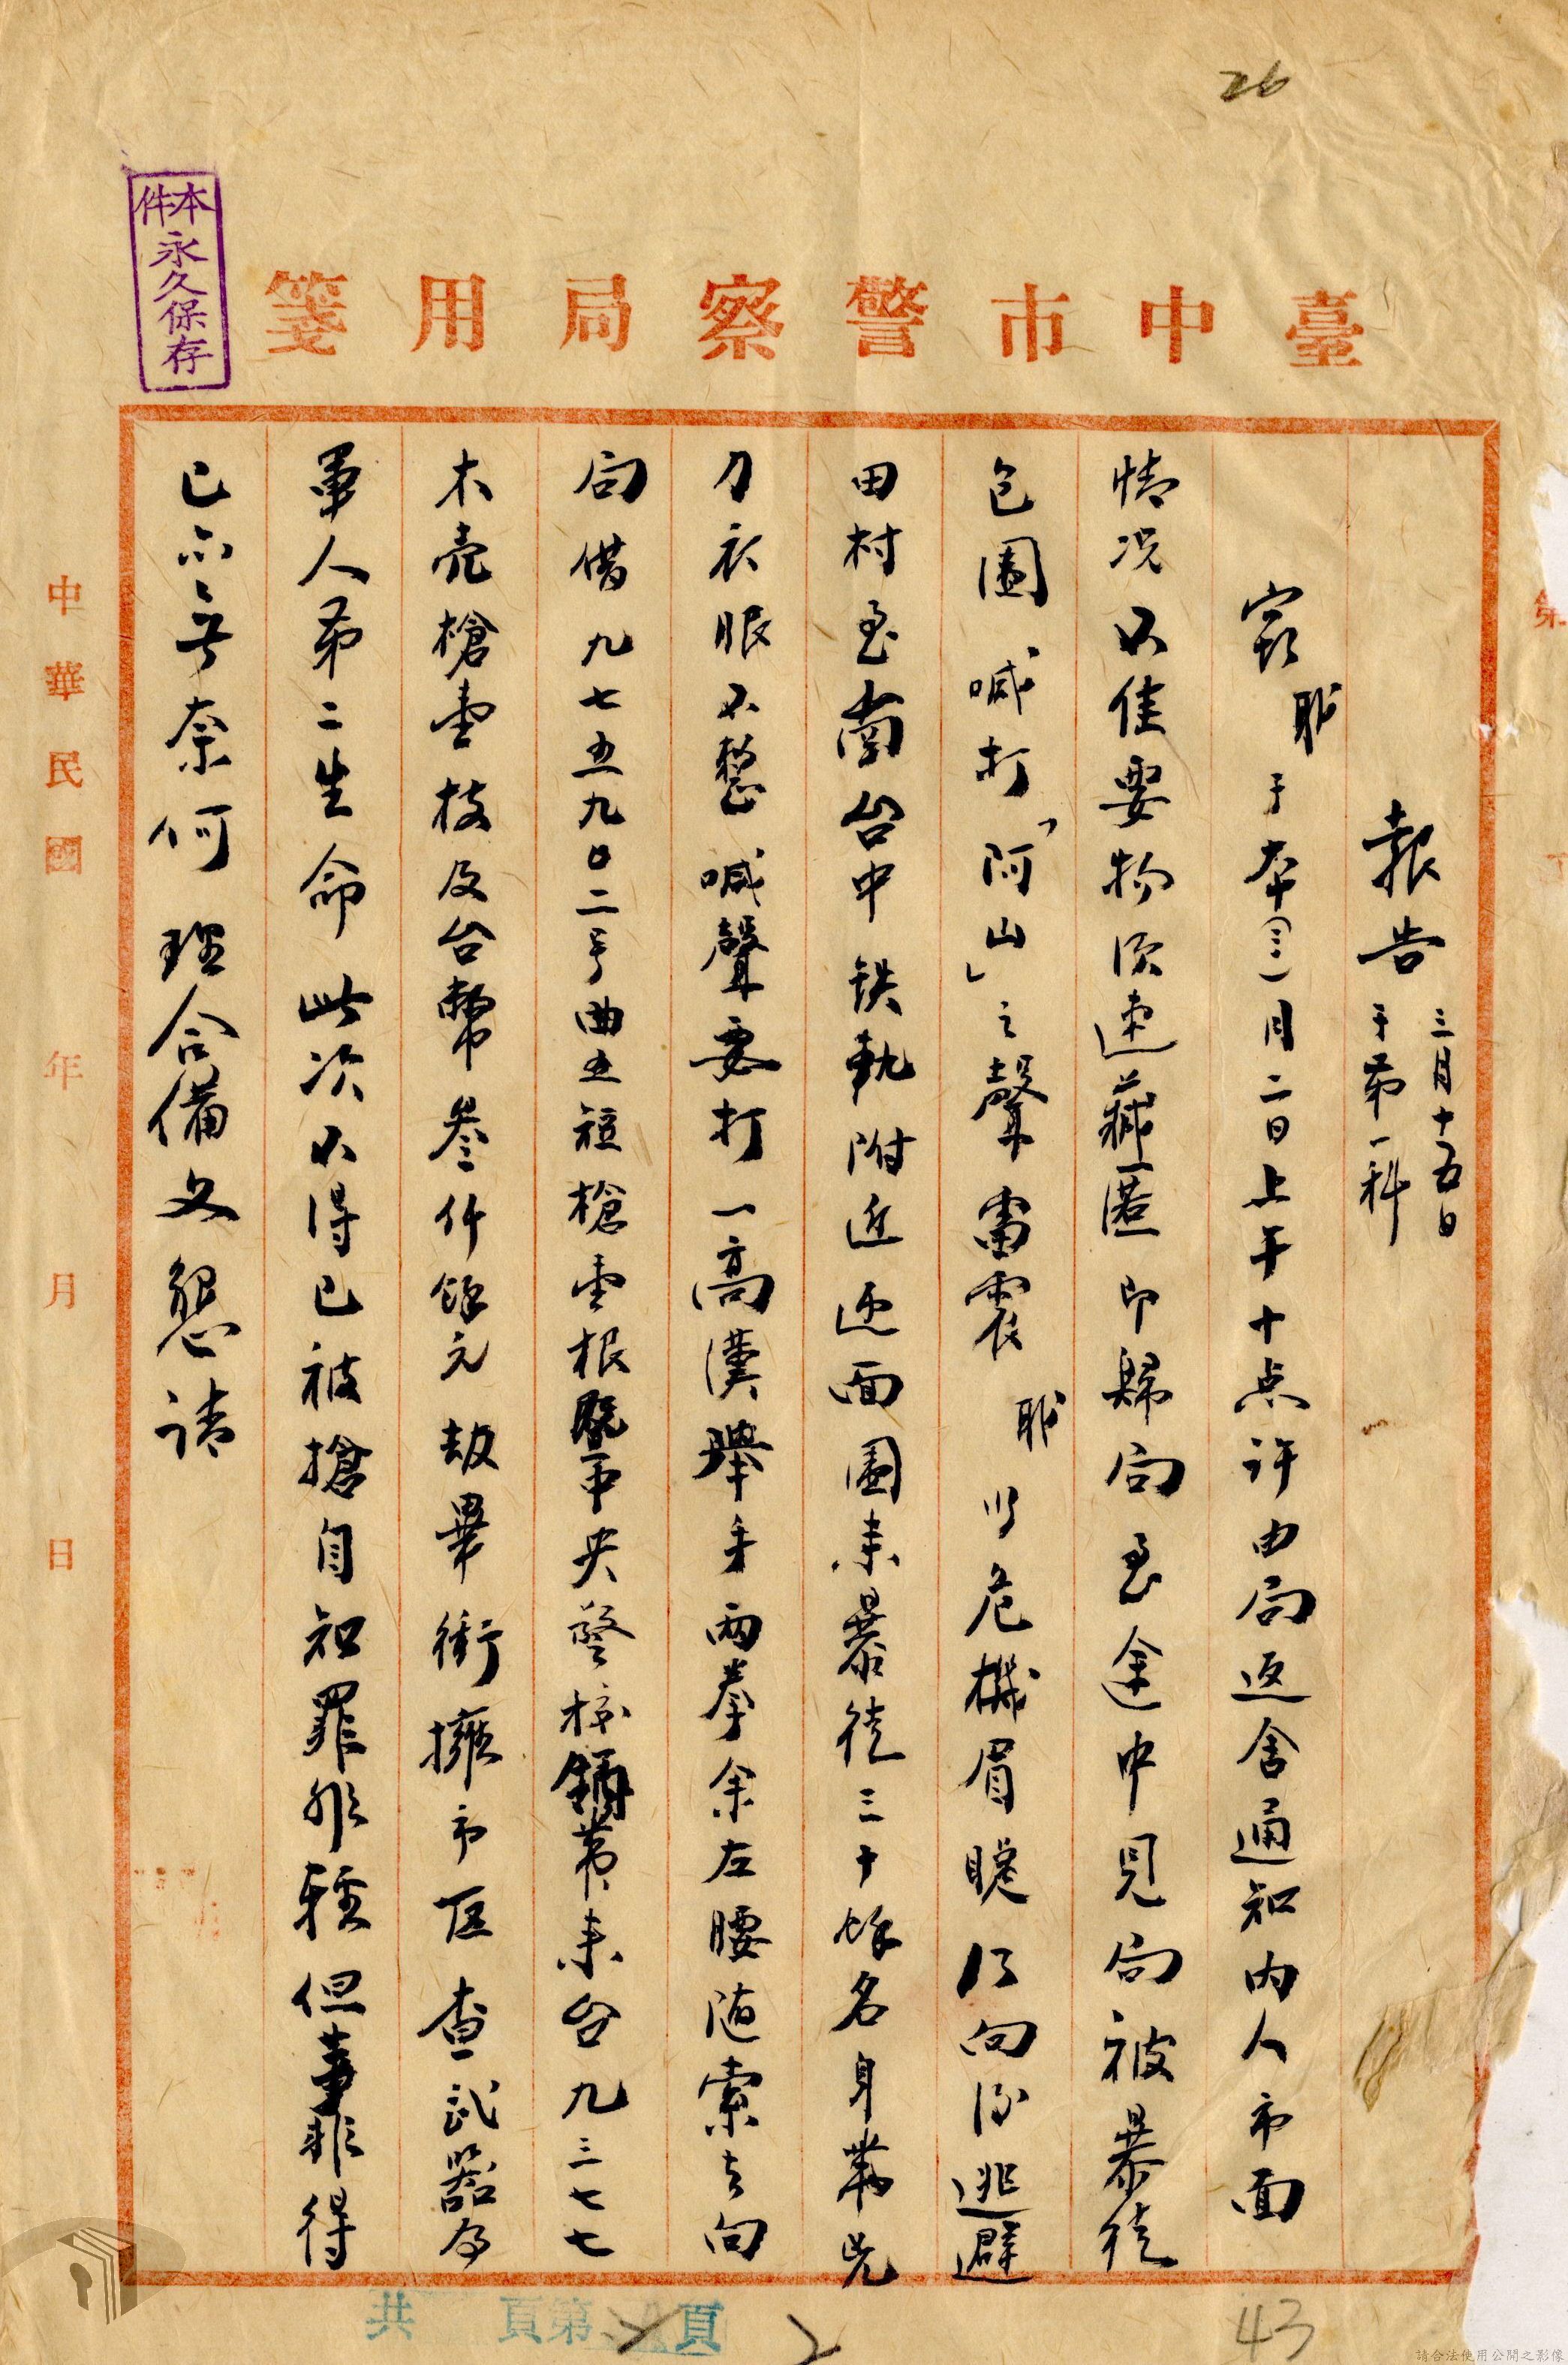 26
本件永久保存
臺中市警察局用箋
報告 三月十五日 于第一科
竊職于本(三)月二日上午十点許由局返舍通知內人市面
情况不佳要物須速藏匿即歸局至途中見局被暴徒
包圍「喊打「阿山」之聲雷震職以危機眉睫行向後逃避
田村至南台中鉄軌附近迎面圍來暴徒三十餘名身帶兇
刀衣服不整喊聲要打一高漢舉手兩拳余左腰随索去向
局借九七五九0二号曲五短槍壹根暨中央警校銷帶來台九三七七
木壳槍壹枝及台幣叁仟餘元劫畢衝擁市區查武器為
軍人第二生命此次不得已被搶自知罪非輕但事非得
已亦無奈何理合備文懇請
中華民國 年 月 日
第
共 頁第 頁
2
43
請合法使用公開之影像